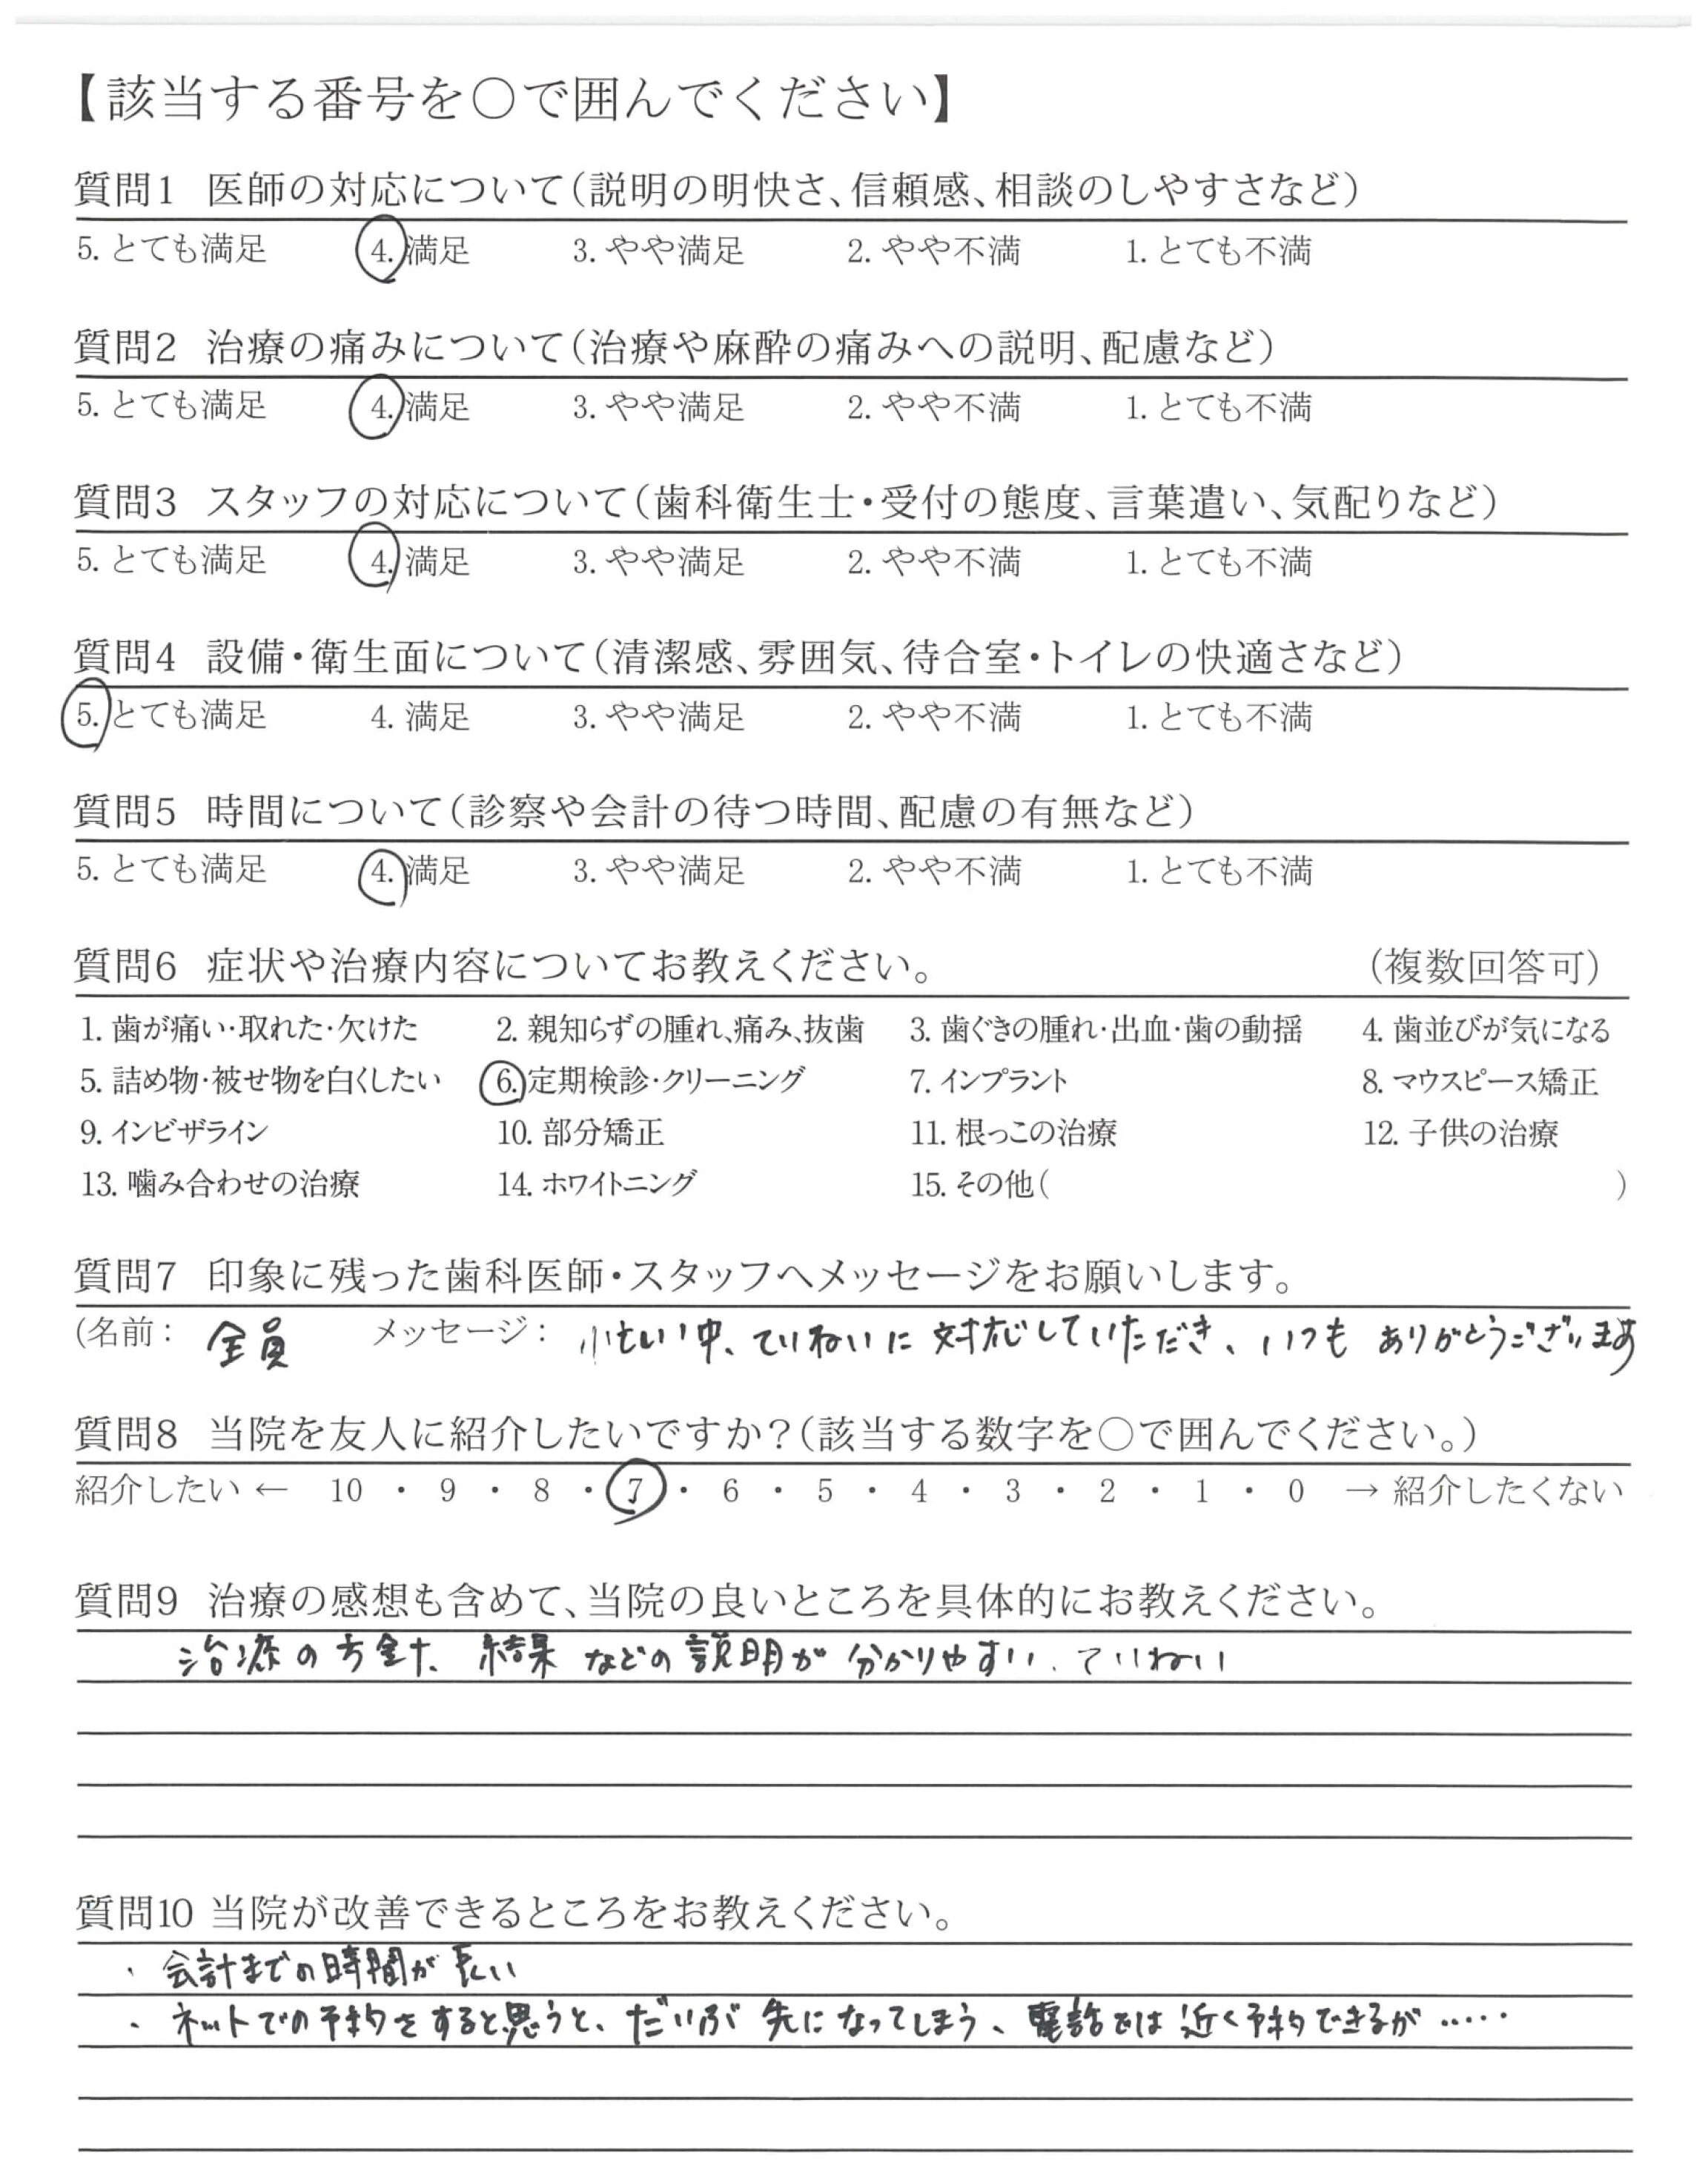 【該当する番号を○で囲んでください】
質問1 医師の対応について(説明の明快さ、信頼感、相談のしやすさなど)
5. とても満足 4. 満足 3. やや満足 2. やや不満 1. とても不満
質問2 治療の痛みについて(治療や麻酔の痛みへの説明、配慮など)
5. とても満足 4. 満足 3. やや満足 2. やや不満 1. とても不満
質問3 スタッフの対応について(歯科衛生士・受付の態度、言葉遣い、気配りなど)
5. とても満足 4. 満足 3. やや満足 2. やや不満 1. とても不満
質問4 設備・衛生面について(清潔感、雰囲気、待合室・トイレの快適さなど)
5. とても満足 4. 満足 3. やや満足 2. やや不満 1. とても不満
質問5 時間について(診察や会計の待つ時間、配慮の有無など)
5. とても満足 4. 満足 3. やや満足 2. やや不満 1. とても不満
質問6 症状や治療内容についてお教えください。 (複数回答可)
1. 歯が痛い・取れた・欠けた 2. 親知らずの腫れ、痛み、抜歯 3. 歯ぐきの腫れ・出血・歯の動揺 4. 歯並びが気になる
5. 詰め物・被せ物を白くしたい 6. 定期検診・クリーニング 7. インプラント 8. マウスピース矯正
9. インビザライン 10. 部分矯正 11. 根っこの治療 12. 子供の治療
13. 噛み合わせの治療 14. ホワイトニング 15. その他( )
質問7 印象に残った歯科医師・スタッフへメッセージをお願いします。
(名前: 全員 メッセージ: 中、ていねいに対応していただき、いつもありがとうございます
質問8 当院を友人に紹介したいですか?(該当する数字を○で囲んでください。)
紹介したい ← 10 ・ 9 ・ 8 ・ 7 ・ 6 ・ 5 ・ 4 ・ 3 ・ 2 ・ 1 ・ 0 → 紹介したくない
質問9 治療の感想も含めて、当院の良いところを具体的にお教えください。
治療の方針、結果などの説明が分かりやすい、ていねい
質問10 当院が改善できるところをお教えください。
・会計までの時間が長い
・ネットでの予約をすると思うと、だいぶ先になってしまう、電話では近く予約できるが・・・・・